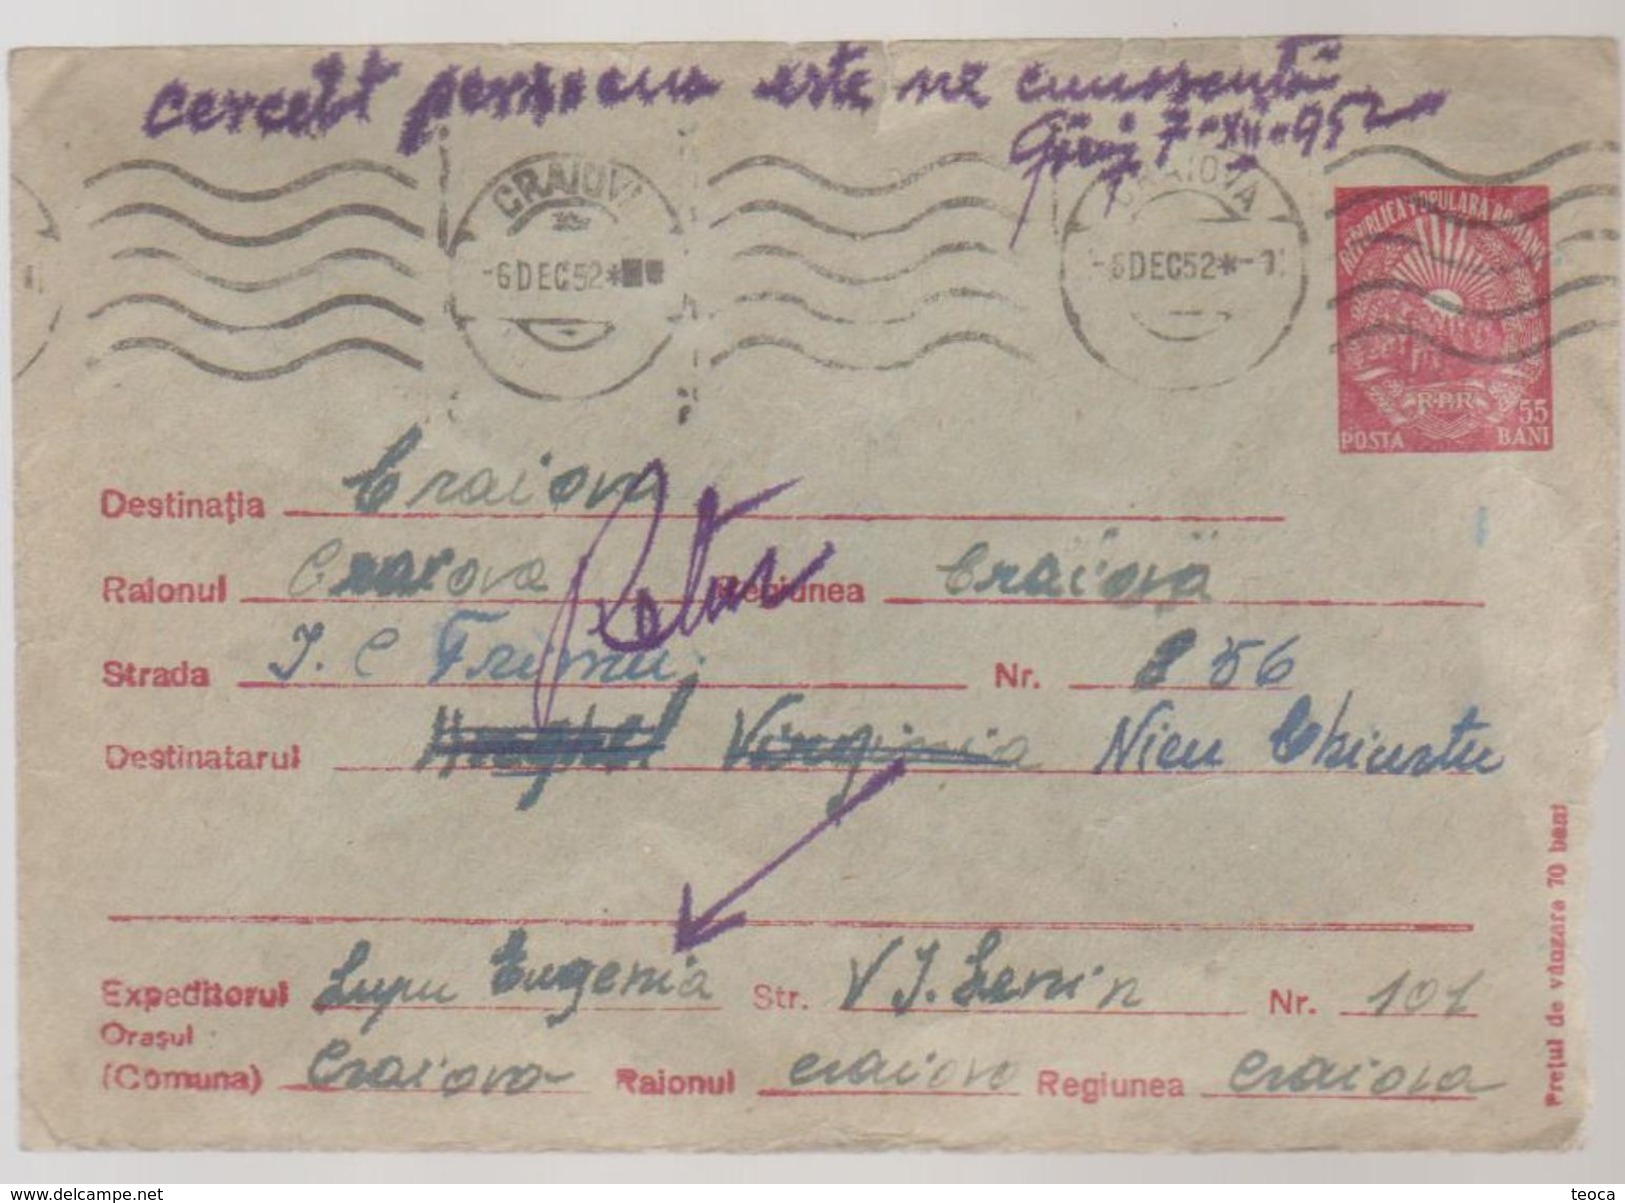 persoana este ne cunoscută
7-XII-952
CRAIOVA
-6DEC52*
CRAIOVA
-6DEC52*-1
REPUBLICA POPULARĂ ROMÂNĂ
R.P.R
55
POSTA BANI
Destinaţia Craiova
Retur
Raionul Craiova Regiunea Craiova
Strada I. C Frimu. Nr. 256
Destinatarul Virginia Nicu
Expeditorul Lupu Eugenia Str. V I. Lenin Nr. 101
Oraşul
(Comuna) Craiova Raionul craiova Regiunea Craiova
Preţul de vânzare 70 bani
delcampe.net
teoca